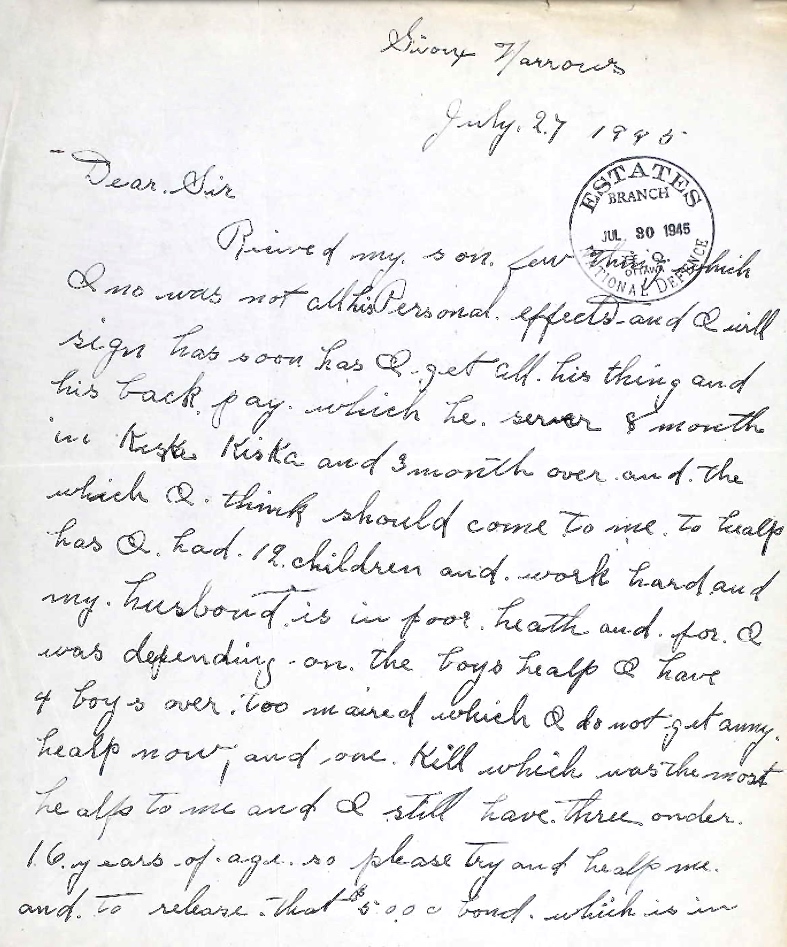 Sioux Narrows
July. 27 1945
Dear. Sir
ESTATES
BRANCH
JUL 30 1945
OTTAWA
NATIONAL DEFENCE
Rieived my. son. few thing which
I no was not all his Personal. effects and I will
sign has soon has I. get all. his thing and
his back. pay. which he. server 8 month
in Kiska and 3 month over. and. the
which I. think should come to me. to healp
has I. had. 12. children and. work hard and
my. husbond. is in poor. heath and. for. I
was depending on. the boys healp I have
4 boys over. too maired which I do not get anny.
healp now, and one. Kill which was the most
healp to me and I still have. three onder.
16. years. of. age. so please try and healp me.
and. to release. that $ 5000 bond. which is in